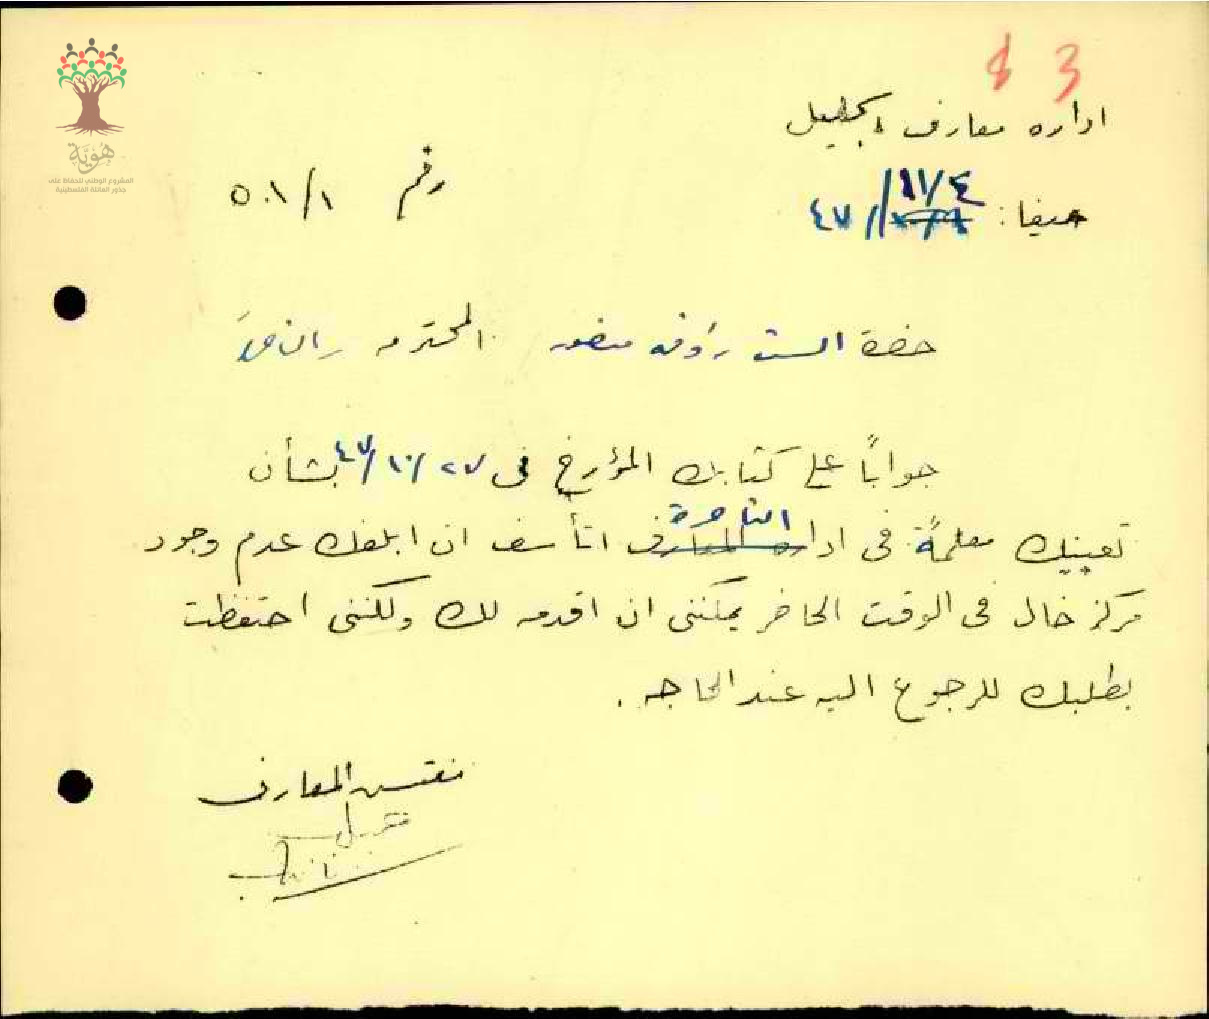 3
هُوِيَّة
المشروع الوطني للحفاظ على
جذور العائلة الفلسطينية
اداره معارف الجليل
حيفا: ١١/٤/ ٤٧
رقم ٥٠١/١
حضرة الست رؤفه منصور المحترمه
جواباً على كتابك المؤرخ فى ٢٧/١٠/٤٧ بشأن
تعيينك معلمةً فى الناصرة اتأسف ان ابلغك عدم وجود
مركز خال فى الوقت الحاضر يمكننى ان اقدمه لك ولكننى احتفظت
بطلبك للرجوع اليه عند الحاجه .
مفتش المعارف